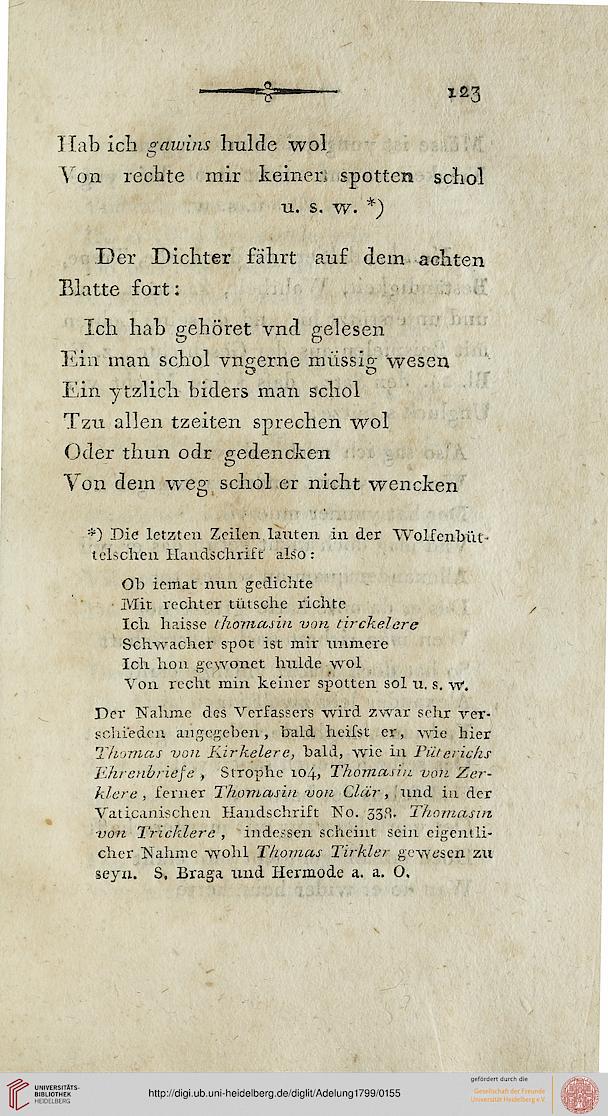 123
Hab ich gawins hulde wol
Von rechte mir keiner spotten schol
u. s. w. *)
Der Dichter fährt auf dem achten
Blatte fort:
Ich hab gehöret vnd gelesen
Ein man schol vngerne müssig wesen
Ein ytzlich biders man schol
Tzu allen tzeiten sprechen wol
Oder thun odr gedencken
Von dem weg schol er nicht wencken
*) Die letzten Zeilen lauten in der Wolfenbüt-
telschen Handschrift also:
Ob iemat nun gedichte
Mit rechter tütsche richte
Ich haisse thomasin von tirckelere
Schwacher spot ist mir unmere
Ich hon gewonet hulde wol
Von recht min keiner spotten sol u. s. w.
Der Nahme des Verfassers wird zwar sehr ver-
schieden angegeben, bald heifst er, wie hier
Thomas von Kirkelere, bald, wie in Püterichs
Ehrenbriefe, Strophe 104, Thomasin von Zer-
klere, ferner Thomasin von Clär, und in der
Vaticanischen Handschrift No. 338. Thomasin
von Tricklere, indessen scheint sein eigentli-
cher Nahme wohl Thomas Tirkler gewesen zu
seyn. S. Braga und Hermode a. a. O.
UNIVERSITÄTS-
BIBLIOTHEK
HEIDELBERG
http://digi.ub.uni-heidelberg.de/diglit/Adelung1799/0155
gefördert durch die
Gesellschaft der Freunde
Universität Heidelberg e.V.